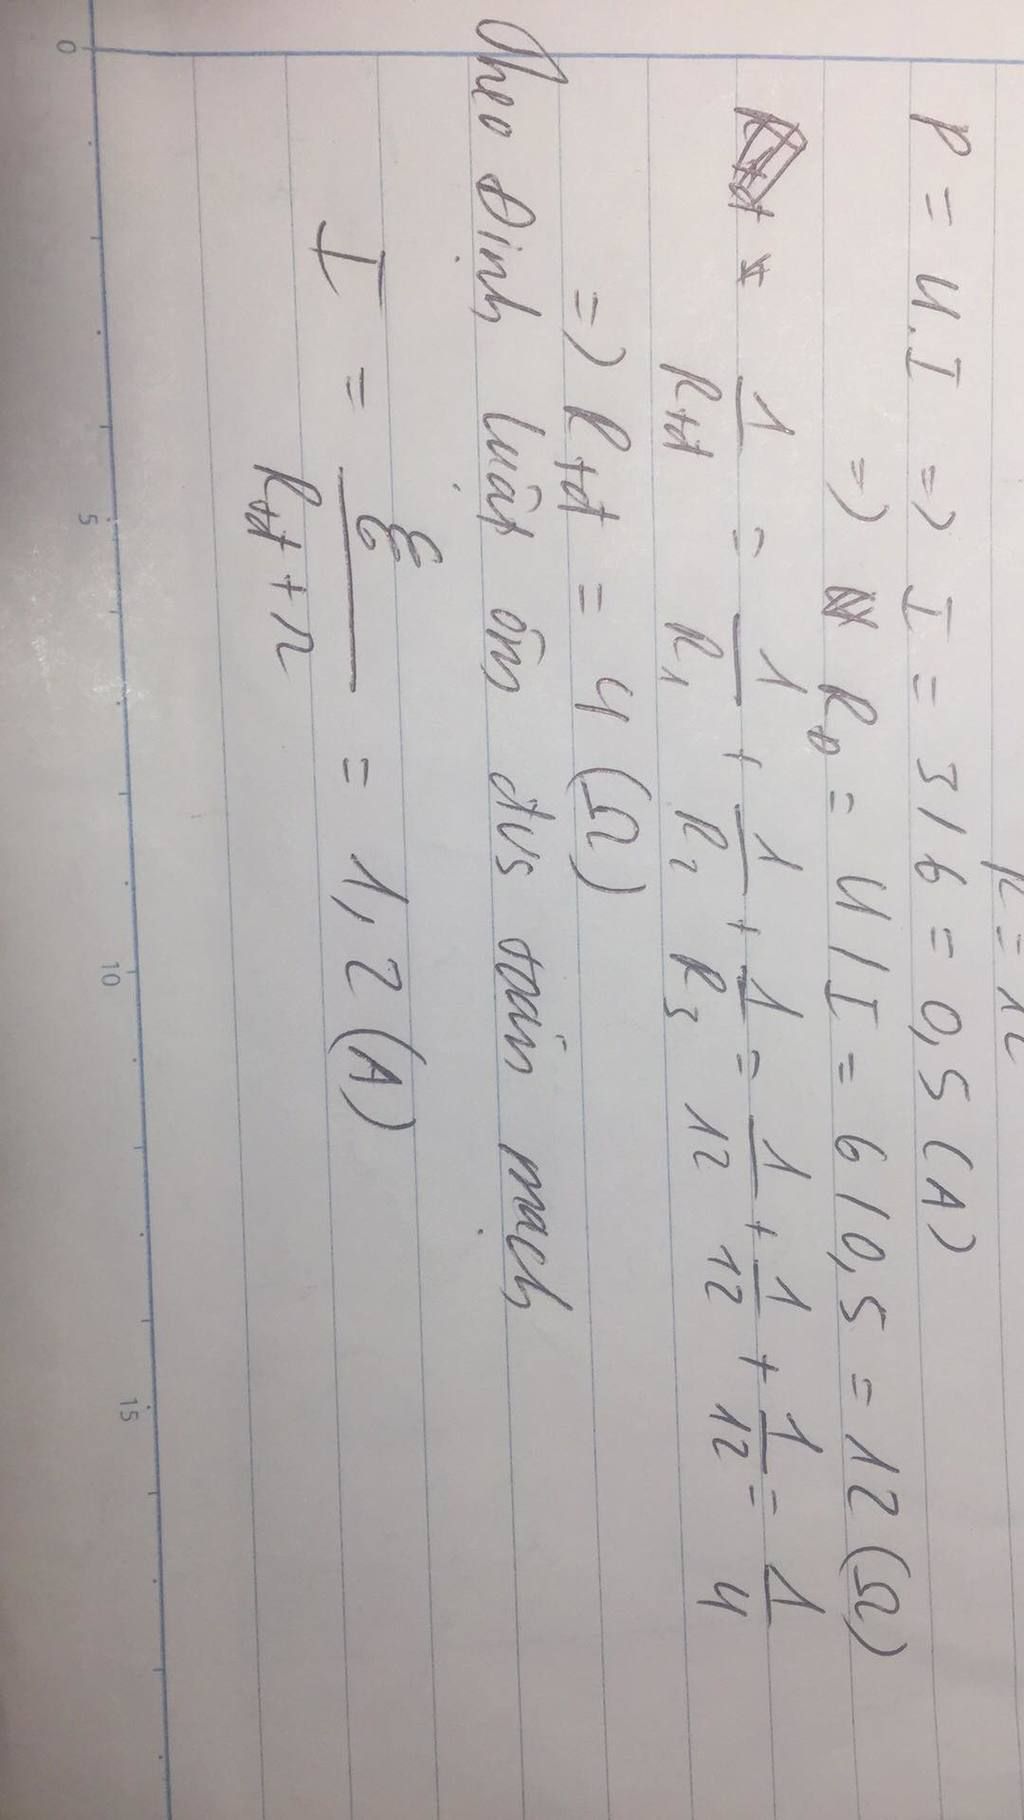 P = U.I => I = 3/6 = 0,5 (A)
=> R_Đ = U/I = 6/0,5 = 12 (Ω)
* 1/Rtđ = 1/R1 + 1/R2 + 1/R3 = 1/12 + 1/12 + 1/12 = 1/4
=> Rtđ = 4 (Ω)
Theo Định luật ôm đvs toàn mạch
I = ξ/(Rtđ + r) = 1,2 (A)
0
5
10
15